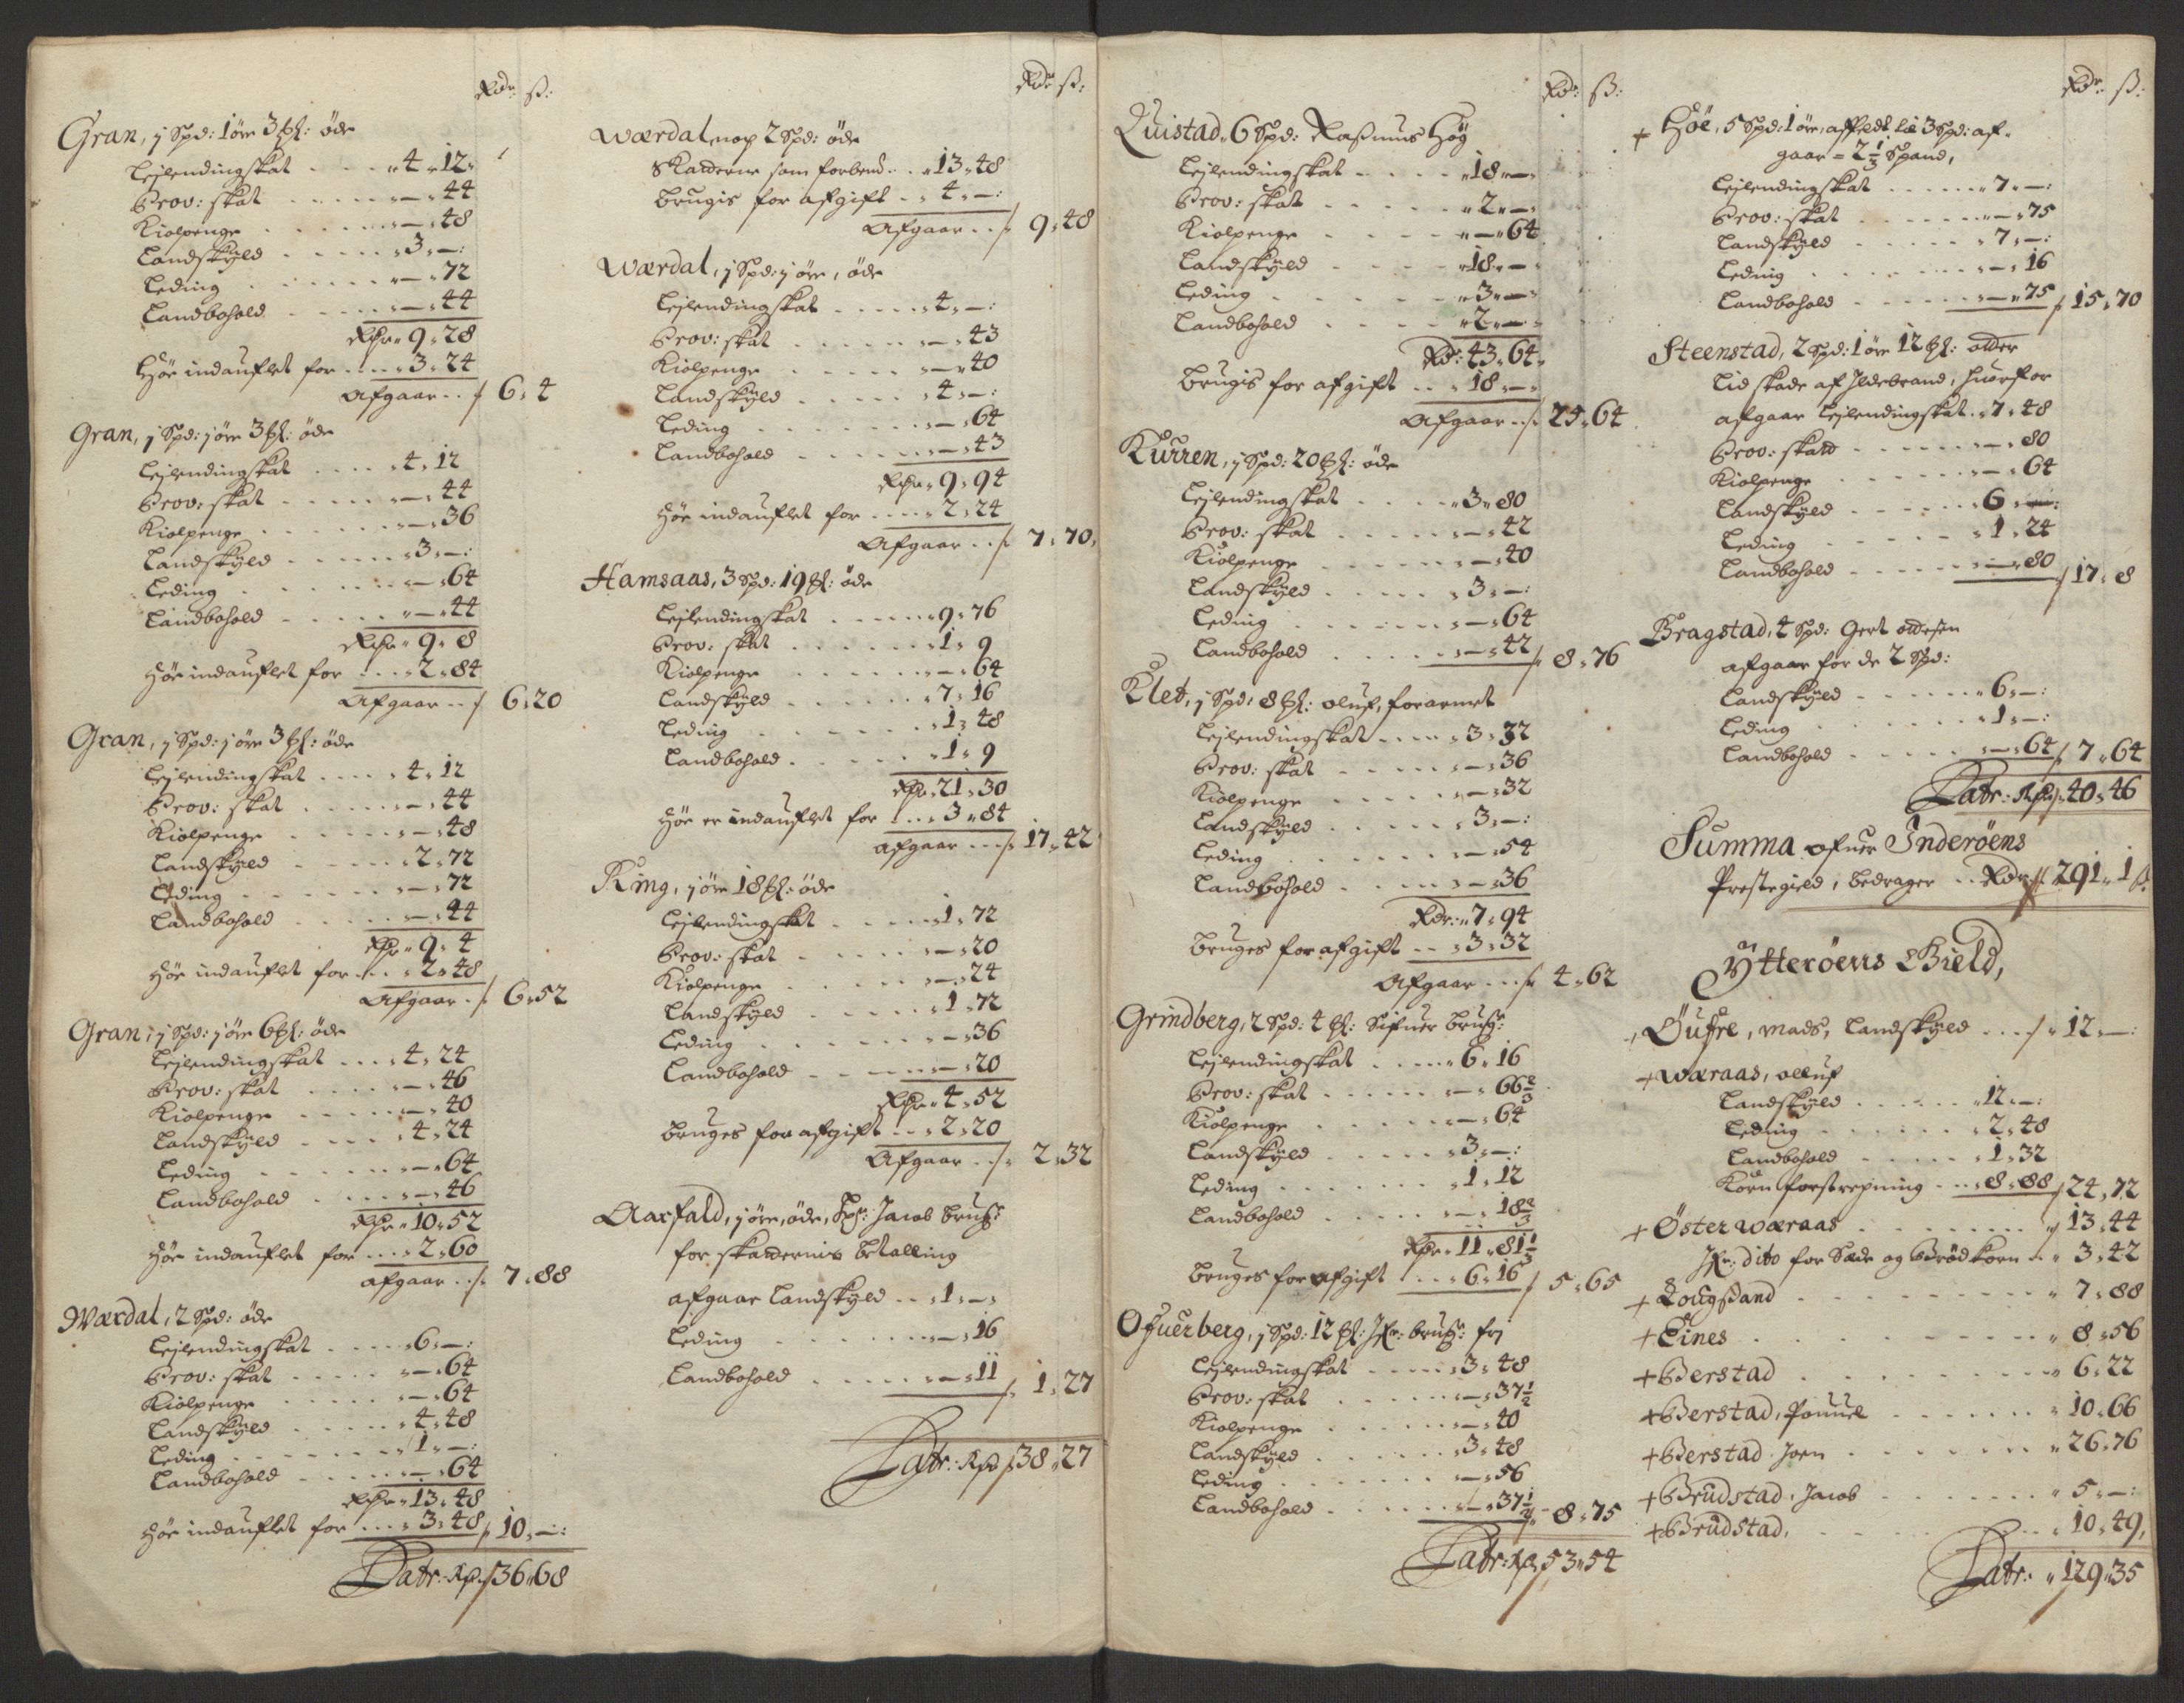 Rdr: ß:
Gran, j Spd: 1 öre 3 ℔: öde
Leilendingskat . . . 4 " 12
Prov: skat . . . — " 44
Kiølpenge . . . — " 48
Landskÿld . . . 3 " —:
Leding . . . — " 72
Landbohold . . . — " 44
Rdr " 9 " 28
Höe indauflet for . . . 3 " 24
Afgaar . . 6 " 4
Gran, j Spd: j öre 3 ℔: öde
Leilendingskat . . . 4 " 12
Prov: skat . . . — " 44
Kiølpenge . . . — " 36
Landskÿld . . . 3 " —:
Leding . . . — " 64
Landbohold . . . — " 44
Rdr " 9 " 8
Höe indauflet for . . . 2 " 84
Afgaar . . 6 " 20
Gran, j Spd: j öre 3 ℔: öde
Leilendingskat . . . 4 " 12
Prov: skat . . . — " 44
Kiølpenge . . . — " 48
Landskÿld . . . 2 " 72
Leding . . . — " 72
Landbohold . . . — " 44
Rdr " 9 " 4
Höe indauflet for . . . 2 " 48
Afgaar . . 6 " 52
Gran, j Spd: j öre 6 ℔: öde
Leilendingskat . . . 4 " 24
Prov: skat . . . — " 46
Kiølpenge . . . — " 40
Landskÿld . . . 4 " 24
Leding . . . — " 64
Landbohold . . . — " 46
Rdr " 10 " 52
Höe indauflet for . . . 2 " 60
afgaar . . 7 " 88
Wærdal, 2 Spd: öde
Leilendingskat . . . 6 " —:
Prov: skat . . . — " 64
Kiølpenge . . . — " 64
Landskÿld . . . 4 " 48
Leding . . . 1 " —:
Landbohold . . . — " 64
Rdr " 13 " 48
Höe indauflet for . . . 3 " 48 10 " —:
Latr: Rdr 36 " 68
Rdr ß:
Wærdal noch 2 Spd: öde
Skatterne som forbend . . 13 " 48
Brugis for afgift . . 4 " —:
Afgaar . . 9 " 48
Wærdal, j Spd: j öre, öde
Leilendingskat . . . 4 " —:
Prov: skat . . . — " 43
Kiølpenge . . . — " 40
Landskÿld . . . 4 " —:
Leding . . . — " 64
Landbohold . . . — " 43
Rdr " 9 " 94
Höe indauflet for . . . 2 " 24
Afgaar . . 7 " 70
Hamsaas, 3 Spd: 19 ℔: öde
Leilendingskat . . . 9 " 76
Prov: skat . . . 1 " 9
Kiølpenge . . . — " 64
Landskÿld . . . 7 " 16
Leding . . . 1 " 48
Landbohold . . . 1 " 9
Rdr " 21 " 30
Höe er indauflet for . . . 3 " 84
afgaar . . . 17 " 42
Ring, j öre 18 ℔: öde
Leilendingskat . . . 1 " 72
Prov: skat . . . — " 20
Kiølpenge . . . — " 24
Landskÿld . . . 1 " 72
Leding . . . — " 36
Landbohold . . . — " 20
Rdr " 4 " 52
Bruges for afgift . . . 2 " 20
Afgaar . . 2 " 32
Aarfald, j öre, öde, Jacob Brug:
for skatternis betalling
afgaar Landskÿld . . 1 " —:
Leding . . . — " 16
Landbohold . . . — " 11 1 " 27
Latr: Rdr 38 " 27
Rdr: ß:
Quistad " 6 Spd: Rasmus Höÿ
Leilendingskat . . . 18 " —
Prov: skat . . . 2 " —
Kiølpenge . . . — " 64
Landskÿld . . . 18 " —
Leding . . . 3 " —
Landbohold . . . 2 " —
Rdr: 43 " 64
Brugis for afgift . . . 18 " —
Afgaar . . 25 " 64
Kurren, j Spd: 20 ℔: öde
Leilendingskat . . . 3 " 80
Prov: skat . . . — " 42
Kiølpenge . . . — " 40
Landskÿld . . . 3 " —:
Leding . . . — " 64
Landbohold . . . — " 42 8 " 76
Klet, j Spd, 8 ℔: oluf, forarmet
Leilendingskat . . . 3 " 32
Prov: skat . . . — " 36
Kiølpenge . . . — " 32
Landskÿld . . . 3 " —:
Leding . . . — " 54
Landbohold . . . — " 36
Rdr: " 7 " 94
Bruges for afgift . . . 3 " 32
Afgaar . . . 4 " 62
Grindberg, 2 Spd: 4 ℔: Sifuer Brug:
Leilendingskat . . . 6 " 16
Prov: skat . . . — " 66 2/3
Kiølpenge . . . — " 64
Landskÿld . . . 3 " —:
Leding . . . 1 " 12
Landbohold . . . — " 18 2/3
Rdr " 11 " 81 1/3
Bruges for afgift . . . 6 " 16 5 " 65
Ofuerberg, j Spd: 12 ℔: brug: frj
Leilendingskat . . . 3 " 48
Prov: skat . . . — " 37 1/2
Kiølpenge . . . — " 40
Landskÿld . . . 3 " 48
Leding . . . — " 56
Landbohold . . . — " 37 1/2 8 " 75
Latr: Rdr 53 " 54
Rdr ß:
+ Höe, 5 Spd: 1 öre, affledt 3 Spd: af-
gaar = 2 1/3 Spand,
Leilendingskat . . . 7 " —:
Prov: skat . . . — " 75
Landskÿld . . . 7 " —:
Leding . . . — " 16
Landbohold . . . — " 75 15 " 70
Steenstad, 2 Spd: 1 öre 12 ℔: otter
Lid skade af Ildebrand, huorfor
afgaar Leilendingskat . . 7 " 48
Prov: skatt . . . — " 80
Kiølpenge . . . — " 64
Landskÿld . . . 6 " —:
Leding . . . 1 " 24
Landbohold . . . — " 80 17 " 8
Bragstad, 4 Spd: Gert ottesen
afgaar for de 2 Spd:
Landskÿld . . . 6 " —:
Leding . . . 1 " —:
Landbohold . . . — " 64 7 " 64
Latr: Rdr 40 " 46
Summa ofuer Inderöens
Prestegield, bedrager . . Rdr 291 " 1 ß
Ÿtteröens Gield,
Öufre, mads, Landskÿld . . . 12 " —:
+ Wæraas, olluf
Landskÿld . . . 12 " —:
Leding . . . 2 " 48
Landbohold . . . 1 " 32
Korn forstrepning . . . 8 " 88 24 " 72
+ Öster wæraas . . . 13 " 44
dito for Sæde og Brödkorn . . 3 " 42
+ Lougsand . . . 7 " 88
+ Eines . . . 8 " 56
+ Berstad . . . 6 " 22
+ Berstad, Pouuel . . . 10 " 66
+ Berstad Joen . . . 26 " 76
+ Brudstad, Jacob . . . 5 " —:
+ Brudstad, . . . 10 " 49
Latr: " 129 " 35